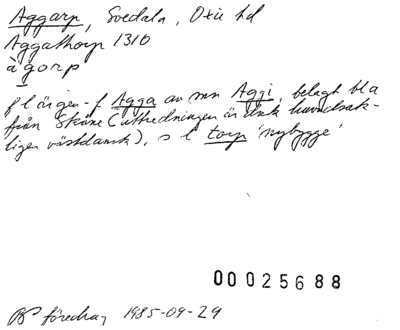 Aggarp, Svedala, Oxie hd
Aggathorp 1310
àgorp
f l är gen-f Agga av mn Aggi, belagt bl a
från Skåne (utbredningen är dock huvudsak-
ligen västdansk), s l torp 'nybygge'
00025688
föredrag 1985-09-29